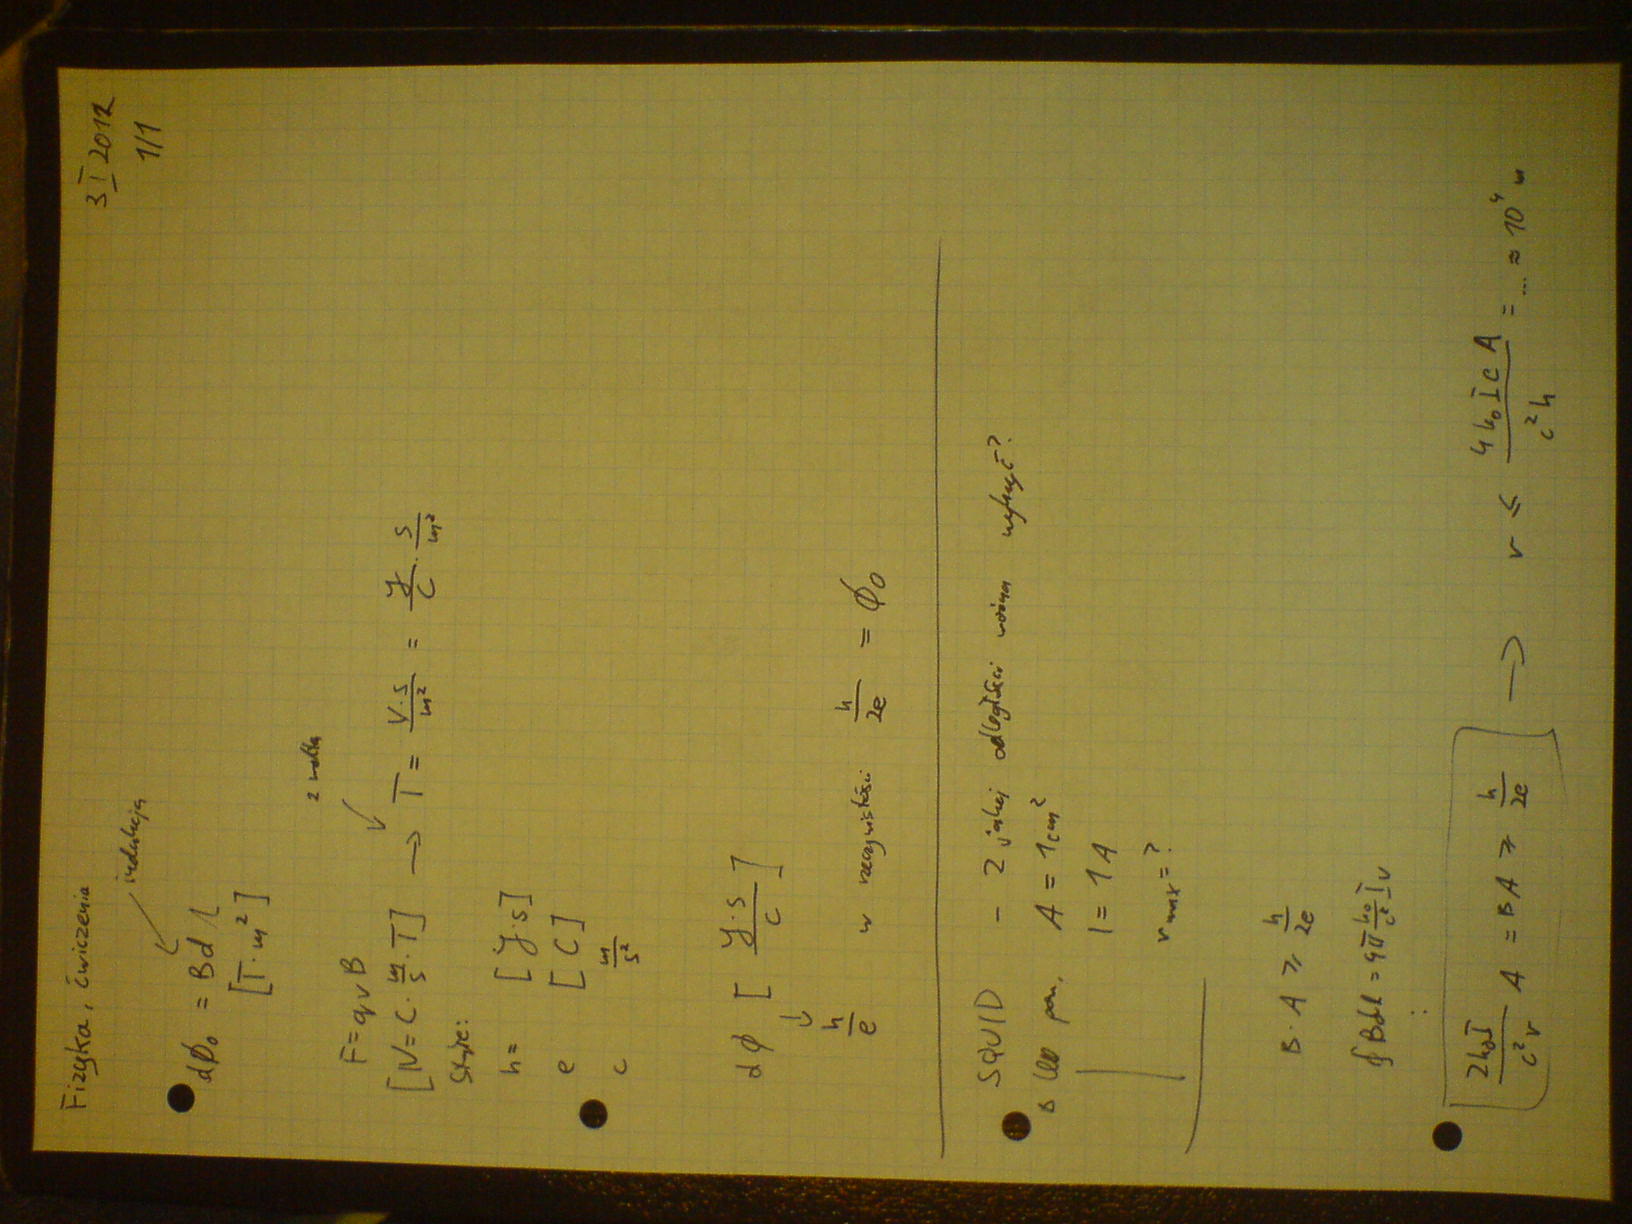 Fizyka, ćwiczenia
3 I 2012
1/1
indukcja
dϕ₀ = B d l
[T · m²]
F = q v B
[N = C · m/s · T] → T = V·s/m² = J/C · s/m²
Stałe:
h = [J · s]
e [C]
c m/s²
dϕ [J·s/C]
↓
h/e
w rzeczywistości h/2e = ϕ₀
SQUID - z jakiej odległości można wykryć?
A = 1 cm²
I = 1 A
r max = ?
B · A ≥ h/2e
∮ B dl = 4π k₀/c² I
⋮
2k₀I/c²r A = B A ≥ h/2e → r ≤ 4 k₀ I e A/c² h = ... ≈ 10⁴ m